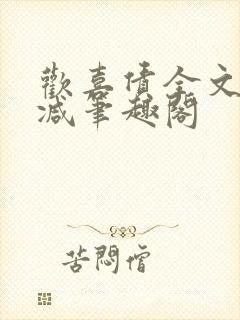 歡喜債全文
减筆趣閣
苦悶僧